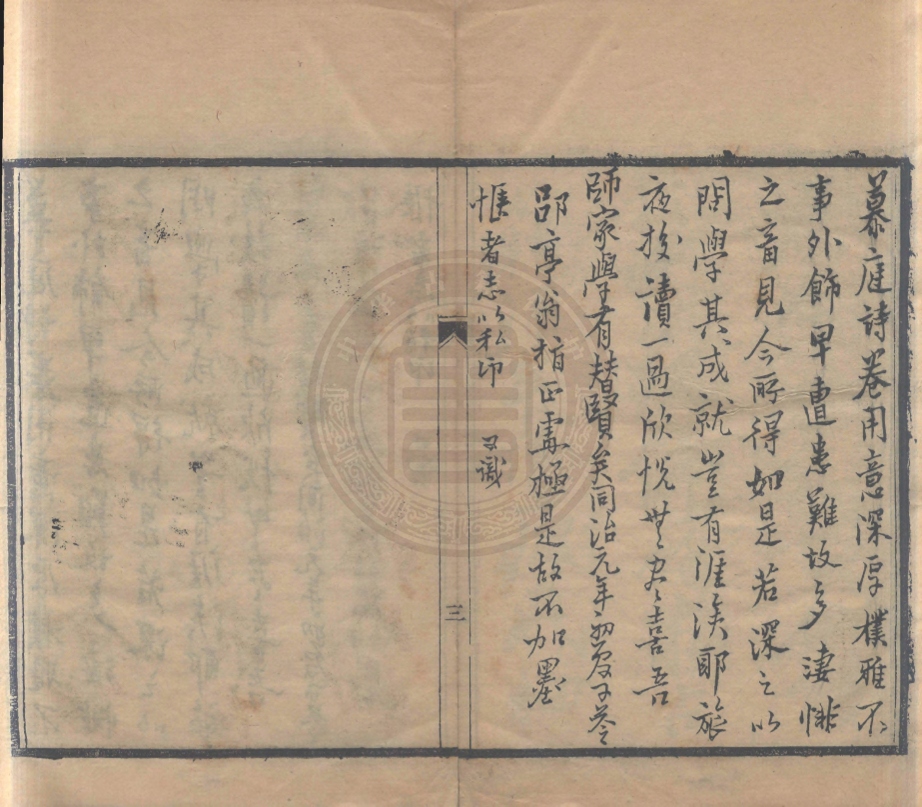 慕庭詩卷用意深厚樸雅不
事外飾早遭患難故多淒悱
之音見今所得如是若深之以
問學其成就豈有涯涘耶旅
夜投讀一過欣悅無盡喜吾
師家學有替賢矣同治元年
郘亭翁指正處極是故不加墨
愜者志以私印 又識
三